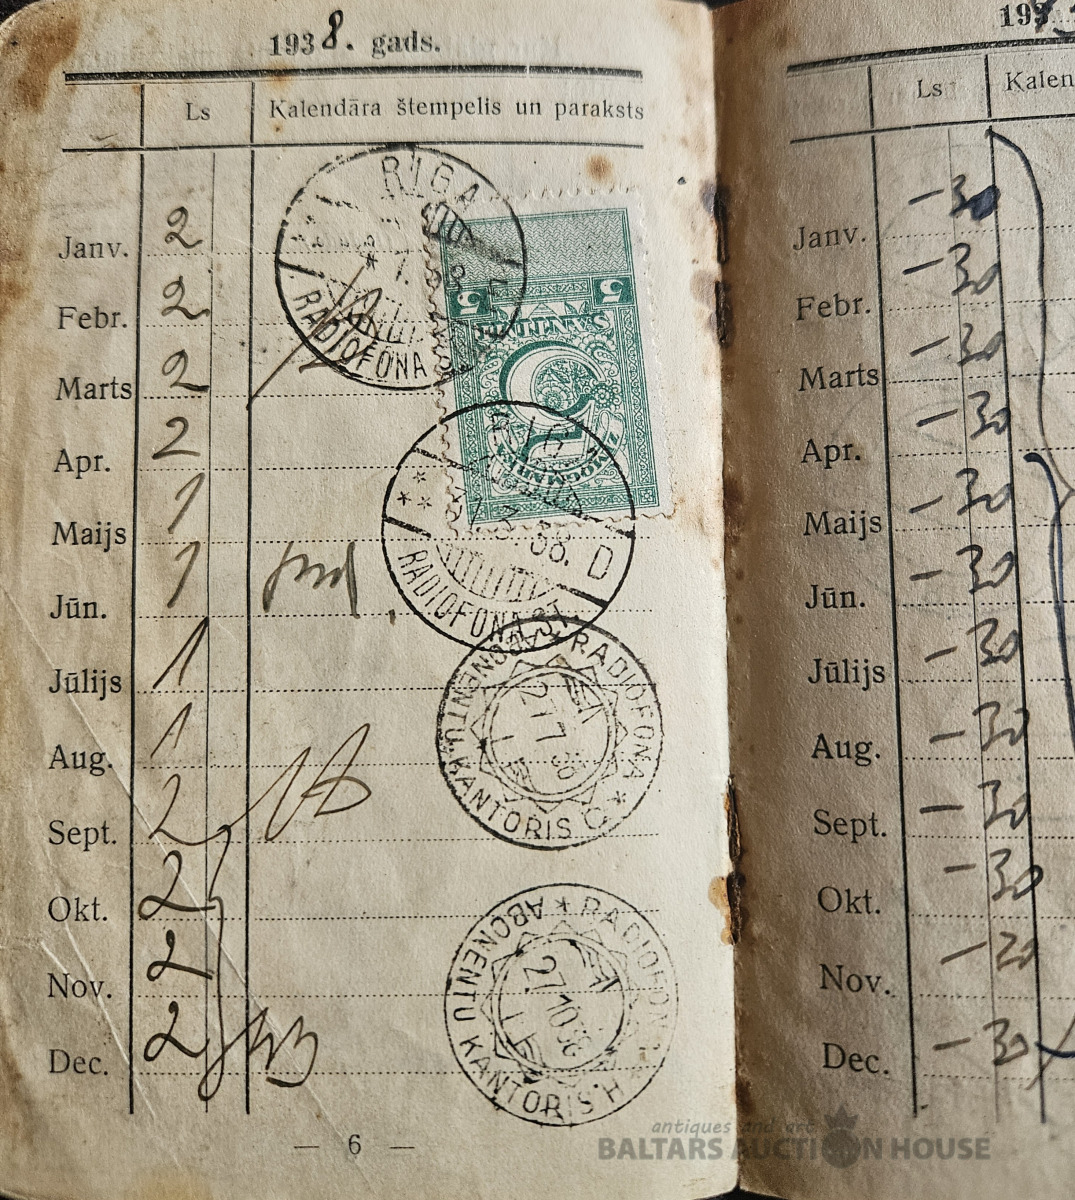 1938. gads.
Ls Kalendāra štempelis un paraksts
Janv. 2
Febr. 2
Marts 2
Apr. 2
Maijs 1
Jūn. 1
Jūlijs 1
Aug. 1
Sept. 2
Okt. 2
Nov. 2
Dec. 2
RĪGA
RADIOFONA
5 5
SANTIMI
5
ZĪMOGMARKA
D
38.
RADIOFONA ST.
RADIOFONA * ABONENTU KANTORIS C *
27 7 38
RADIOFONA * ABONENTU KANTORIS H *
27 10 38
— 6 —
193
Ls Kalen
Janv. – 30
Febr. – 30
Marts – 30
Apr. – 30
Maijs – 30
Jūn. – 30
Jūlijs – 30
Aug. – 30
Sept. – 30
Okt. – 30
Nov. – 20
Dec. – 30
antiques and art
BALTARS AUCTION HOUSE